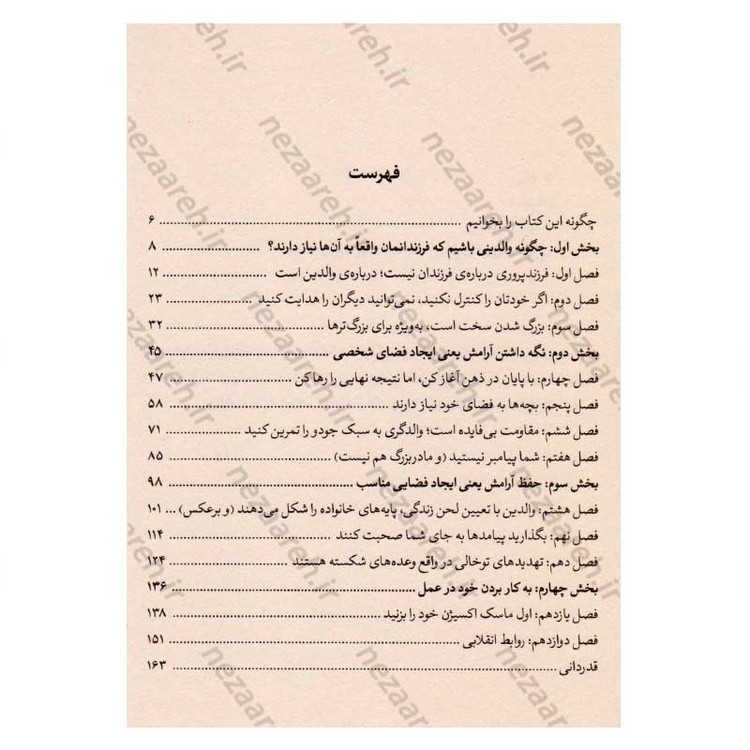 فهرست
چگونه این کتاب را بخوانیم ........ ۶
بخش اول: چگونه والدینی باشیم که فرزندانمان واقعاً به آن‌ها نیاز دارند؟ ........ ۸
فصل اول: فرزندپروری درباره‌ی فرزندان نیست؛ درباره‌ی والدین است ........ ۱۲
فصل دوم: اگر خودتان را کنترل نکنید، نمی‌توانید دیگران را هدایت کنید ........ ۲۳
فصل سوم: بزرگ شدن سخت است، به‌ویژه برای بزرگ‌ترها ........ ۳۲
بخش دوم: نگه داشتن آرامش یعنی ایجاد فضای شخصی ........ ۴۵
فصل چهارم: با پایان در ذهن آغاز کن، اما نتیجه نهایی را رها کن ........ ۴۷
فصل پنجم: بچه‌ها به فضای خود نیاز دارند ........ ۵۸
فصل ششم: مقاومت بی‌فایده است؛ والدگری به سبک جودو را تمرین کنید ........ ۷۱
فصل هفتم: شما پیامبر نیستید (و مادربزرگ هم نیست) ........ ۸۵
بخش سوم: حفظ آرامش یعنی ایجاد فضایی مناسب ........ ۹۸
فصل هشتم: والدین با تعیین لحن زندگی، پایه‌های خانواده را شکل می‌دهند (و برعکس) ... ۱۰۱
فصل نهم: بگذارید پیامدها به جای شما صحبت کنند ........ ۱۱۴
فصل دهم: تهدیدهای توخالی در واقع وعده‌های شکسته هستند ........ ۱۲۴
بخش چهارم: به کار بردن خود در عمل ........ ۱۳۶
فصل یازدهم: اول ماسک اکسیژن خود را بزنید ........ ۱۳۸
فصل دوازدهم: روابط انقلابی ........ ۱۵۱
قدردانی ........ ۱۶۳
nezaareh.ir